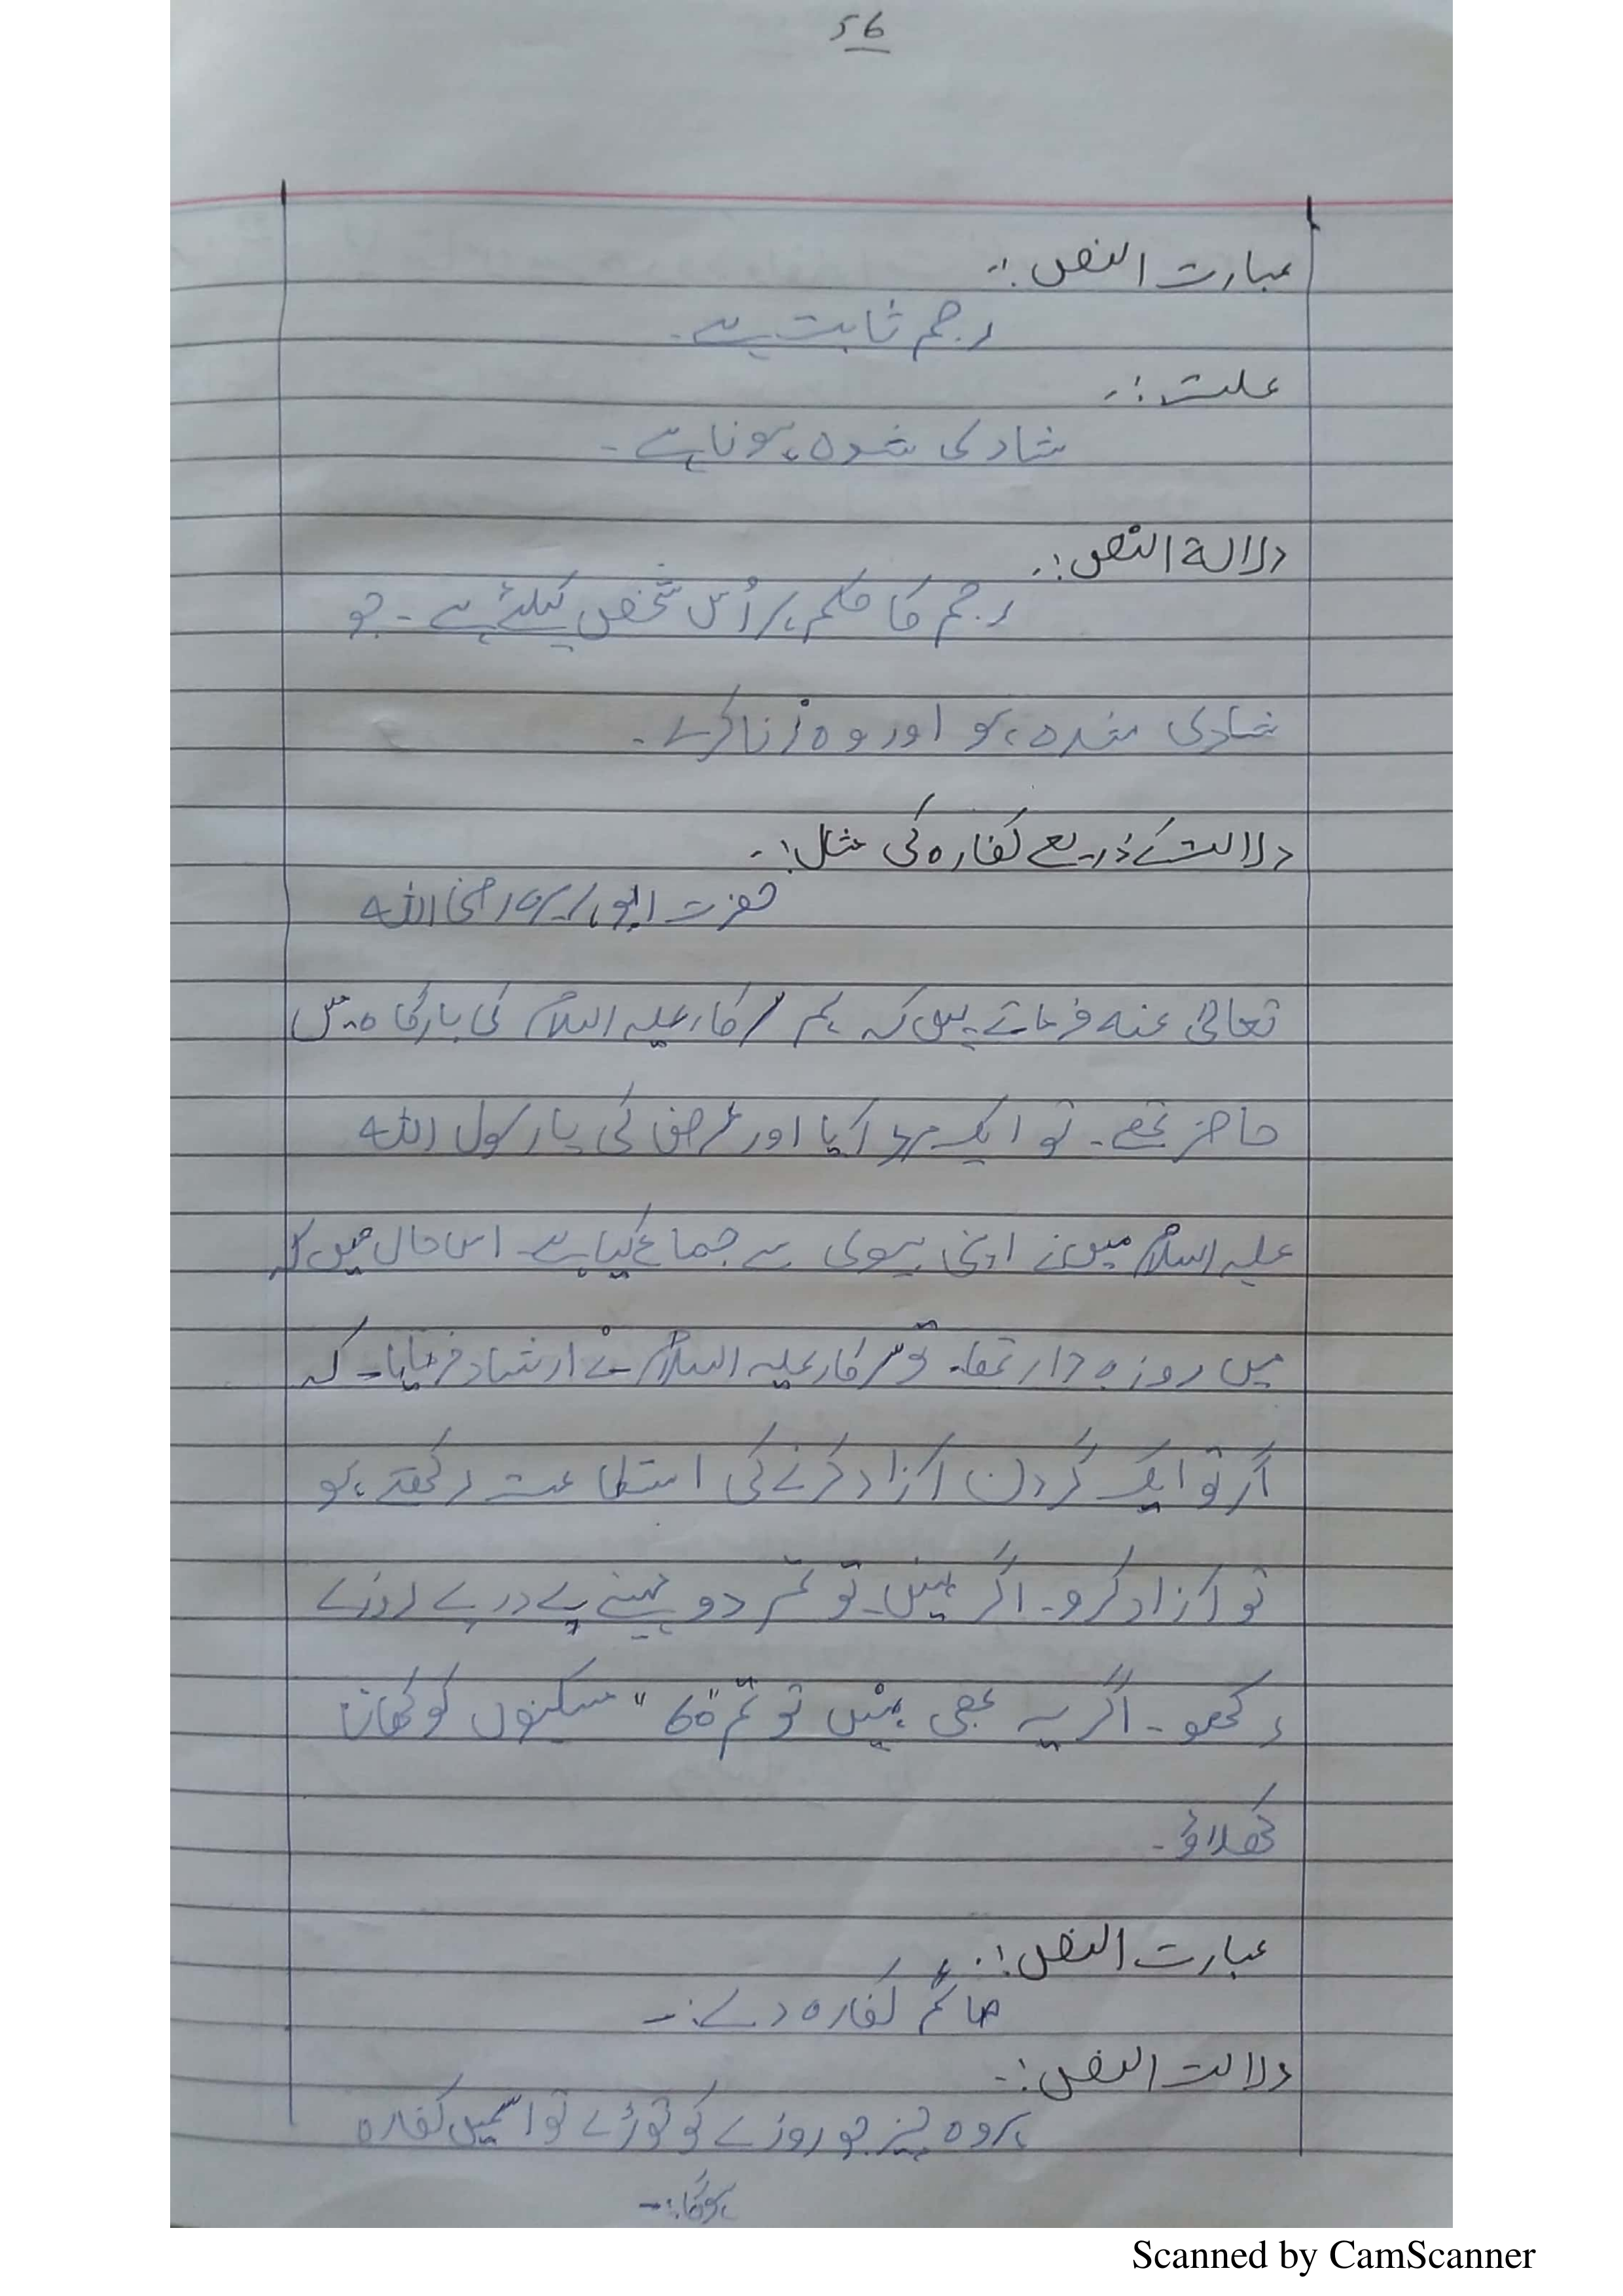 56
عبارت النص :.
رجم ثابت ہے۔
علت :.
شادی شدہ ہونا ہے۔
دلالۃ النص :.
رجم کا حکم ہر اُس شخص کیلئے ہے۔ جو
شادی شدہ ہو اور وہ زنا کرے۔
دلالت کے ذریعے کفارہ کی مثال :.
حضرت ابو ہریرہ رضی اللہ
تعالیٰ عنہ فرماتے ہیں کہ ہم سرکار علیہ السلام کی بارگاہ میں
حاضر تھے۔ تو ایک مرد آیا اور عرض کی یا رسول اللہ
علیہ السلام میں نے اپنی بیوی سے جماع کیا ہے۔ اس حال میں کہ
میں روزہ دار تھا۔ تو سرکار علیہ السلام نے ارشاد فرمایا۔ کہ
اگر تو ایک گردن آزاد کرنے کی استطاعت رکھتے ہو
تو آزاد کرو۔ اگر نہیں۔ تو تم دو مہینے پے درپے روزے
رکھو۔ اگر یہ بھی نہیں تو تم "60" مسکینوں کو کھانا
کھلاؤ۔
عبارت النص :.
صائم کفارہ دے :۔
دلالت النص :۔
ہر وہ چیز جو روزے کو توڑے تو اسمیں کفارہ
ہوگا :۔
Scanned by CamScanner